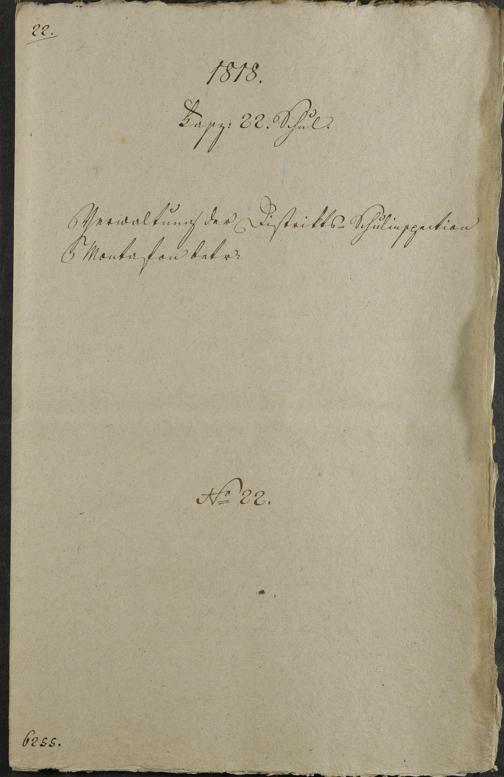 22.
1818.
Fasz: 22. Schul.
Verwaltung der Distrikts-Schulinspection
Montafon betr:
No 22.
6255.